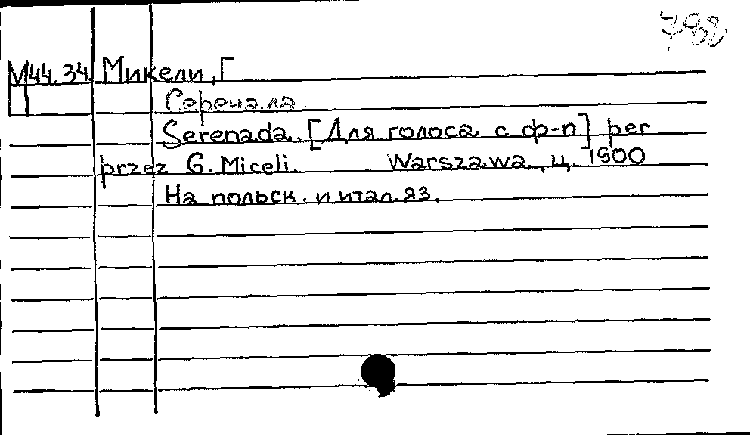 798
М44.34 Микели, Г
Серенада
Serenada. [Для голоса с ф-п] per
przez G. Miceli. Warszawa, ц. 1900
На польск. и итал. яз.